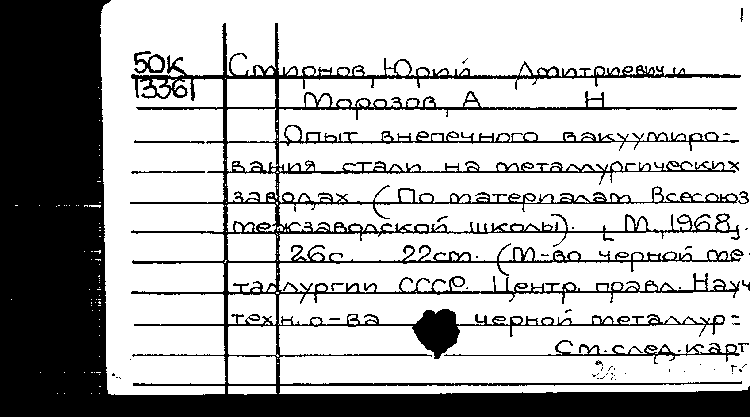 50К Смирнов, Юрий Дмитриевич и
13361 Морозов, А Н
Опыт внепечного вакуумиро-
вания стали на металлургических
заводах. (По материалам Всесоюз
межзаводской школы). [М., 1968].
26с. 22см. (М-во черной ме-
таллургии СССР. Центр. правл. Науч
техн. о-ва черной металлур-
См.след.карт